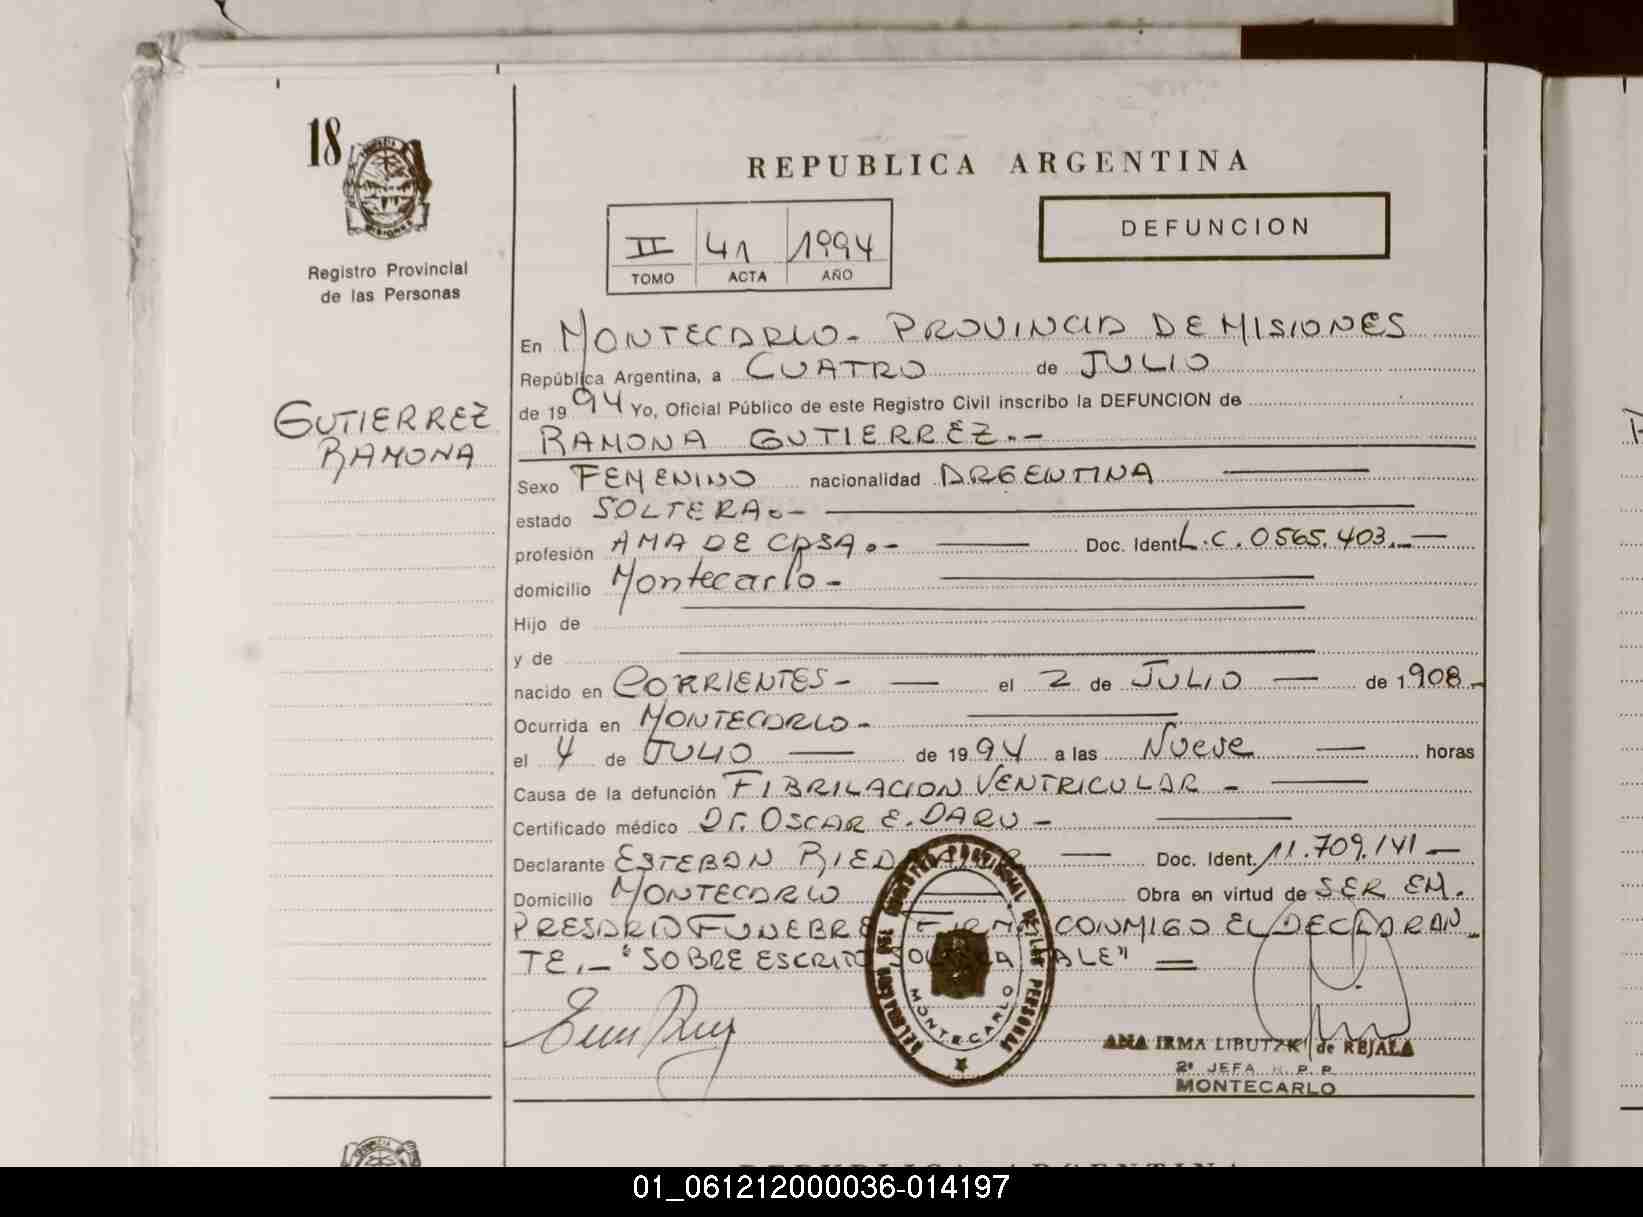 18
Registro Provincial
de las Personas
GUTIERREZ
RAMONA
REPUBLICA ARGENTINA
II 41 1994
TOMO ACTA AÑO
DEFUNCION
En MONTECARLO.- PROVINCIA DE MISIONES
República Argentina, a CUATRO de JULIO
de 1994 Yo, Oficial Público de este Registro Civil inscribo la DEFUNCION de
RAMONA GUTIERREZ.-
Sexo FEMENINO nacionalidad ARGENTINA
estado SOLTERA.-
profesión AMA DE CASA.- Doc. Ident. L.C. 0565.403.-
domicilio Montecarlo-
Hijo de
y de
nacido en CORRIENTES- el 2 de JULIO de 1908.-
Ocurrida en MONTECARLO-
el 4 de JULIO de 1994 a las Nueve horas
Causa de la defunción FIBRILACION VENTRICULAR-
Certificado médico Dr. OSCAR E. DARU-
Declarante ESTEBAN Doc. Ident. 11.709.141-
Domicilio MONTECARLO Obra en virtud de SER EM-
PRESARIO FUNEBRE FIRMA CONMIGO EL DECLARAN-
TE.- "SOBRE ESCRITO SOLTERA VALE"
DELEGACION DEL REGISTRO PROVINCIAL DE LAS PERSONAS
MONTECARLO
ANA IRMA LIBUTZKI de REJALA
2º JEFA R. P. P.
MONTECARLO
REPUBLICA ARGENTINA
01_061212000036-014197